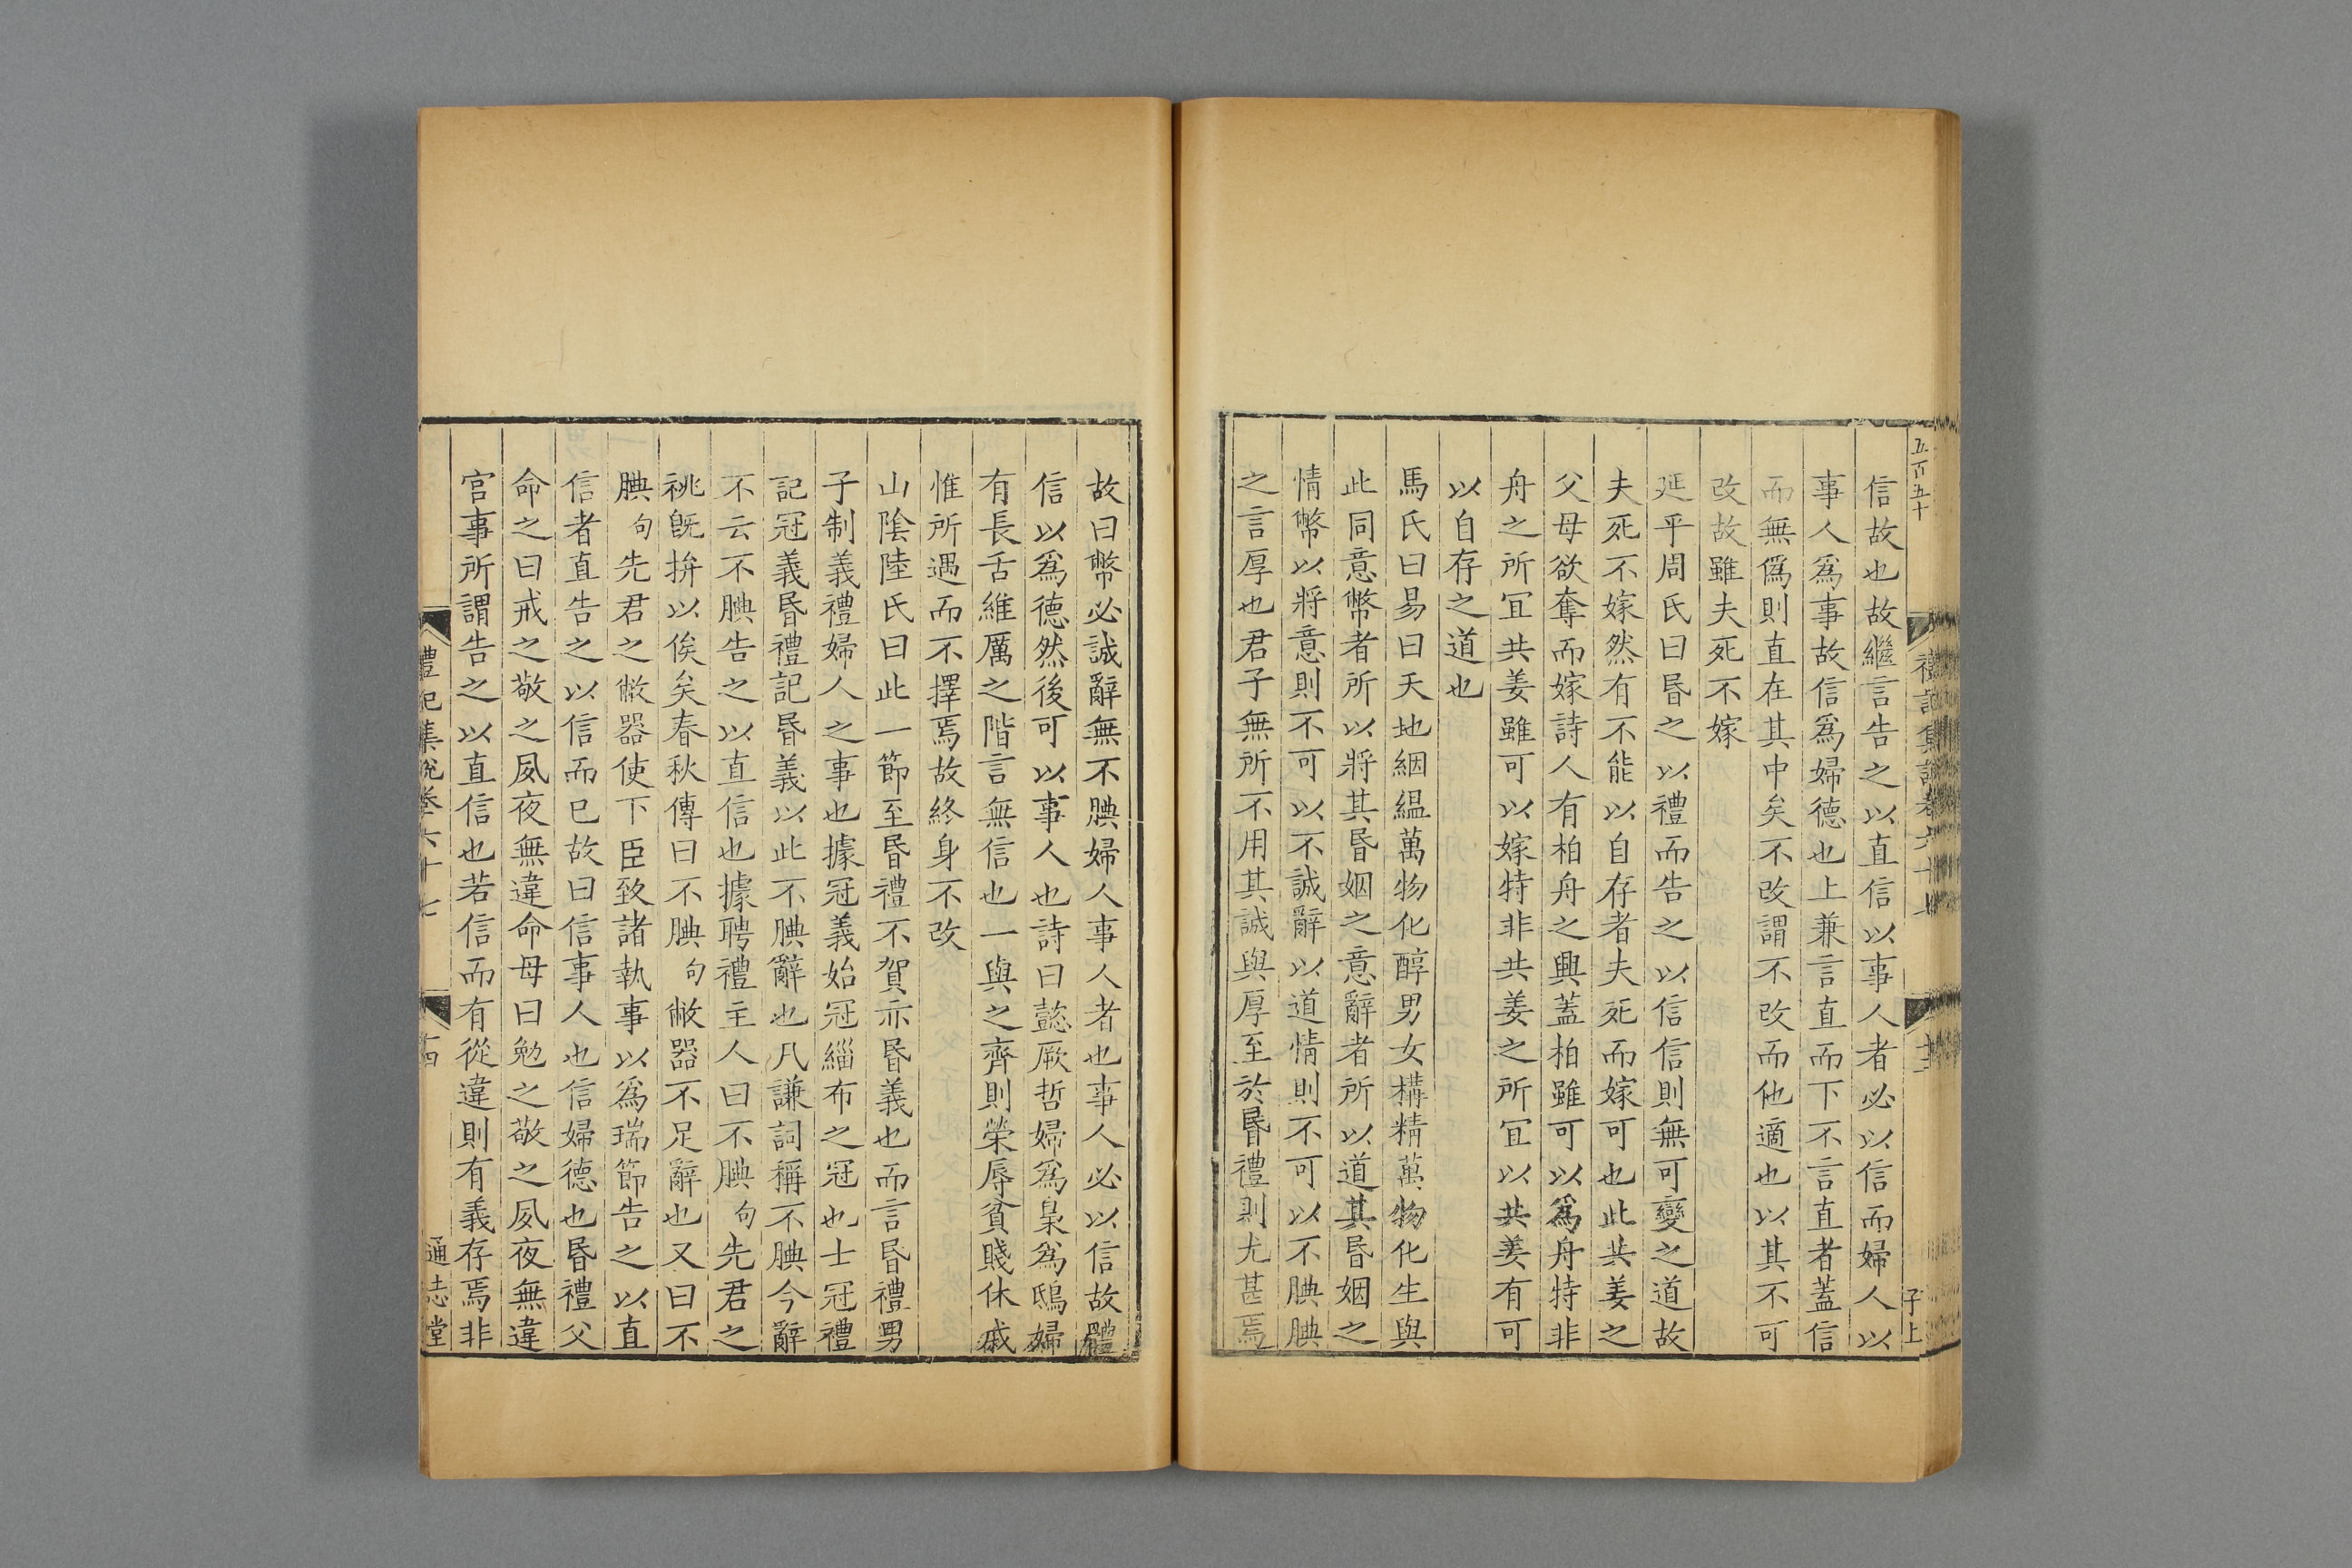 五百五十
子上
信故也故繼言告之以直信以事人者必以信而婦人以
事人爲事故信爲婦德也上兼言直而下不言直者蓋信
而無僞則直在其中矣不改謂不改而他適也以其不可
改故雖夫死不嫁
延平周氏曰昬之以禮而告之以信信則無可變之道故
夫死不嫁然有不能以自存者夫死而嫁可也此共姜之
父母欲奪而嫁詩人有柏舟之興蓋柏雖可以爲舟特非
舟之所冝共姜雖可以嫁特非共姜之所冝以共姜有可
以自存之道也
馬氏曰易曰天地絪縕萬物化醇男女構精萬物化生與
此同意幣者所以將其昬姻之意辭者所以道其昬姻之
情幣以將意則不可以不誠辭以道情則不可以不腆腆
之言厚也君子無所不用其誠與厚至於昬禮則尤甚焉
故曰幣必誠辭無不腆婦人事人者也事人必以信故體
信以爲德然後可以事人也詩曰懿厥哲婦爲梟爲鴟婦
有長舌維厲之階言無信也一與之齊則榮辱貧賤休戚
惟所遇而不擇焉故終身不改
山陰陸氏曰此一節至昬禮不賀亦昬義也而言昬禮男
子制義禮婦人之事也據冠義始冠緇布之冠也士冠禮
記冠義昬禮記昬義以此不腆辭也凡謙詞稱不腆今辭
不云不腆告之以直信也據聘禮主人曰不腆句先君之
祧旣拚以俟矣春秋傳曰不腆句敝器不足辭也又曰不
腆句先君之敝器使下臣致諸執事以爲瑞節告之以直
信者直告之以信而已故曰信事人也信婦德也昬禮父
命之曰戒之敬之夙夜無違命母曰勉之敬之夙夜無違
宮事所謂告之以直信也若信而有從違則有義存焉非
禮記集說卷六十七
通志堂